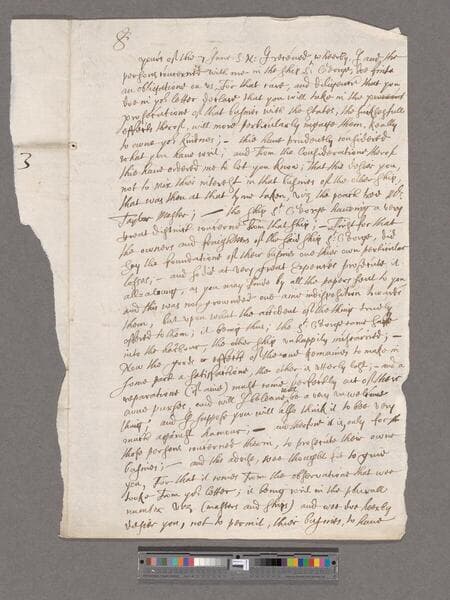 Sr
yours of the 7 June S N: I received, wherby I and the
persons concerned with me in the ship St George, see
an obligations on us, For that care, and diligence that you
doe in yor letter declare that you will take in the
prosecutions of that busines with the States, the
efforts therof, will more perticularly ingage them, Really
to owne yor kindnes; - they have prudently considered
what you have writ, and from the Considerations therof
they have ordered me to let you know; that they desier you,
not to mix their interest in that busines of the other ship,
that was then at that tyme taken, viz the pearle
Taylor Master; - the ship St George haveing a very
great disinct concerne from that ship; - First for that
the owners and freighters of the said ship St George, did
lay the foundations of their busines one their owne perticular
losses; - and hid at very great Expences prosecute it
all alonge, as you may finde by all the papers sent to you
and this was not grounded one anie indisposition towards
them, but upon what the accident of the thing truely
offerd to them; it being thus, the St George came safe
into the harbour, the other ship unhappily miscarried; -
Now the goods or efforts of the one remaines to make in
some part a satisfactione, the other is utterly lost; - and a
reparatione (if anie) must come perfectly out of their
owne purses, and will I beleeve be a very unwelcome
thing; and I suppose you will also think it to bee very
much against honour; - and therfore it is only for
those persons concerned therin, to prosecute their owne
busines; - and this advise, wee thought fit to give
you, For that it comes from the observations that wee
tooke from yor letter, it being writ in the plurall
number viz (masters and ships) and wee doe hereby
desier you, not to permit, their busines, to have
3